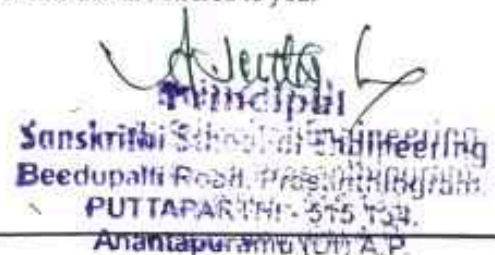 Principal
Sanskrithi School of Engineering
Beedupalli Road, Prasanthinigram.
PUTTAPARTHI - 515 134.
Anantapuramu (Dt) A.P.